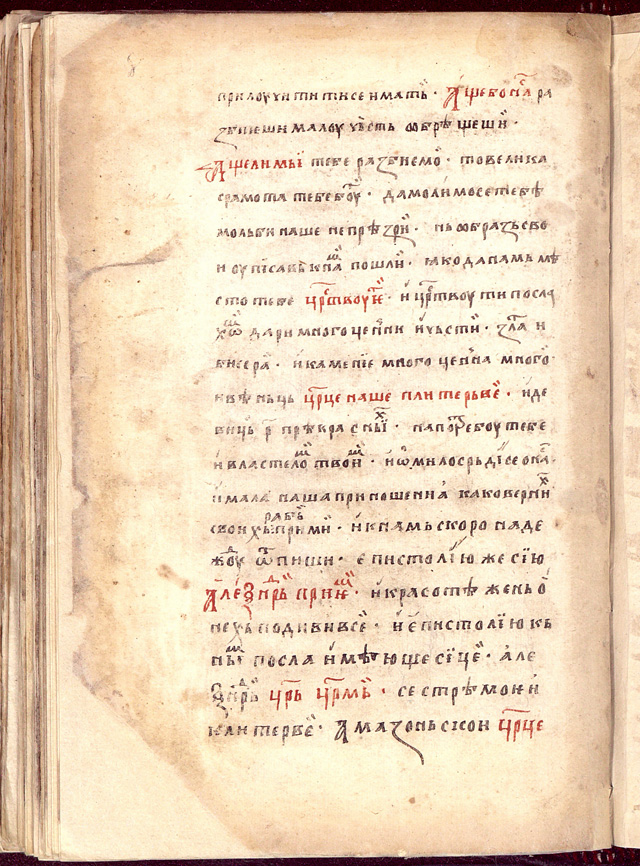 прилоучити ти се имать · Аще бо на ра
збиеши малоу чьсть ѡбрѣщеши ·
Аще ли мы тебе разбиемо · то велика
срамота тебе боу · да молимо се тебѣ
мольби наше не прѣзри · нь ѡбразь сво
и оуписавь к на пошли · ꙗко да намь мѣ
сто тебе цртвоует · и црствоу ти посла
хѡ дари многоценни и чьсти · злта и
бисера · и камениѥ многоценна много
квѣньць црце наше клитерьве · и де
виць р прѣкрасны · на потрѣбоу тебе
и властело твои · и ѡ милосрьдїе се ока
и мала наша приношениа како верни
своихь рабь прими · и к намь скоро наде
жоу ѿпиши · епистолїю же сїю
Алеѯнрь прие · и красотѣ жень ѡ
нехь подививсе · и епистолїю кь
ны посла имѣющее сице · але
ѯнрь црь црмь · сестрѣ мои
клитерве · Амазоньскои црце